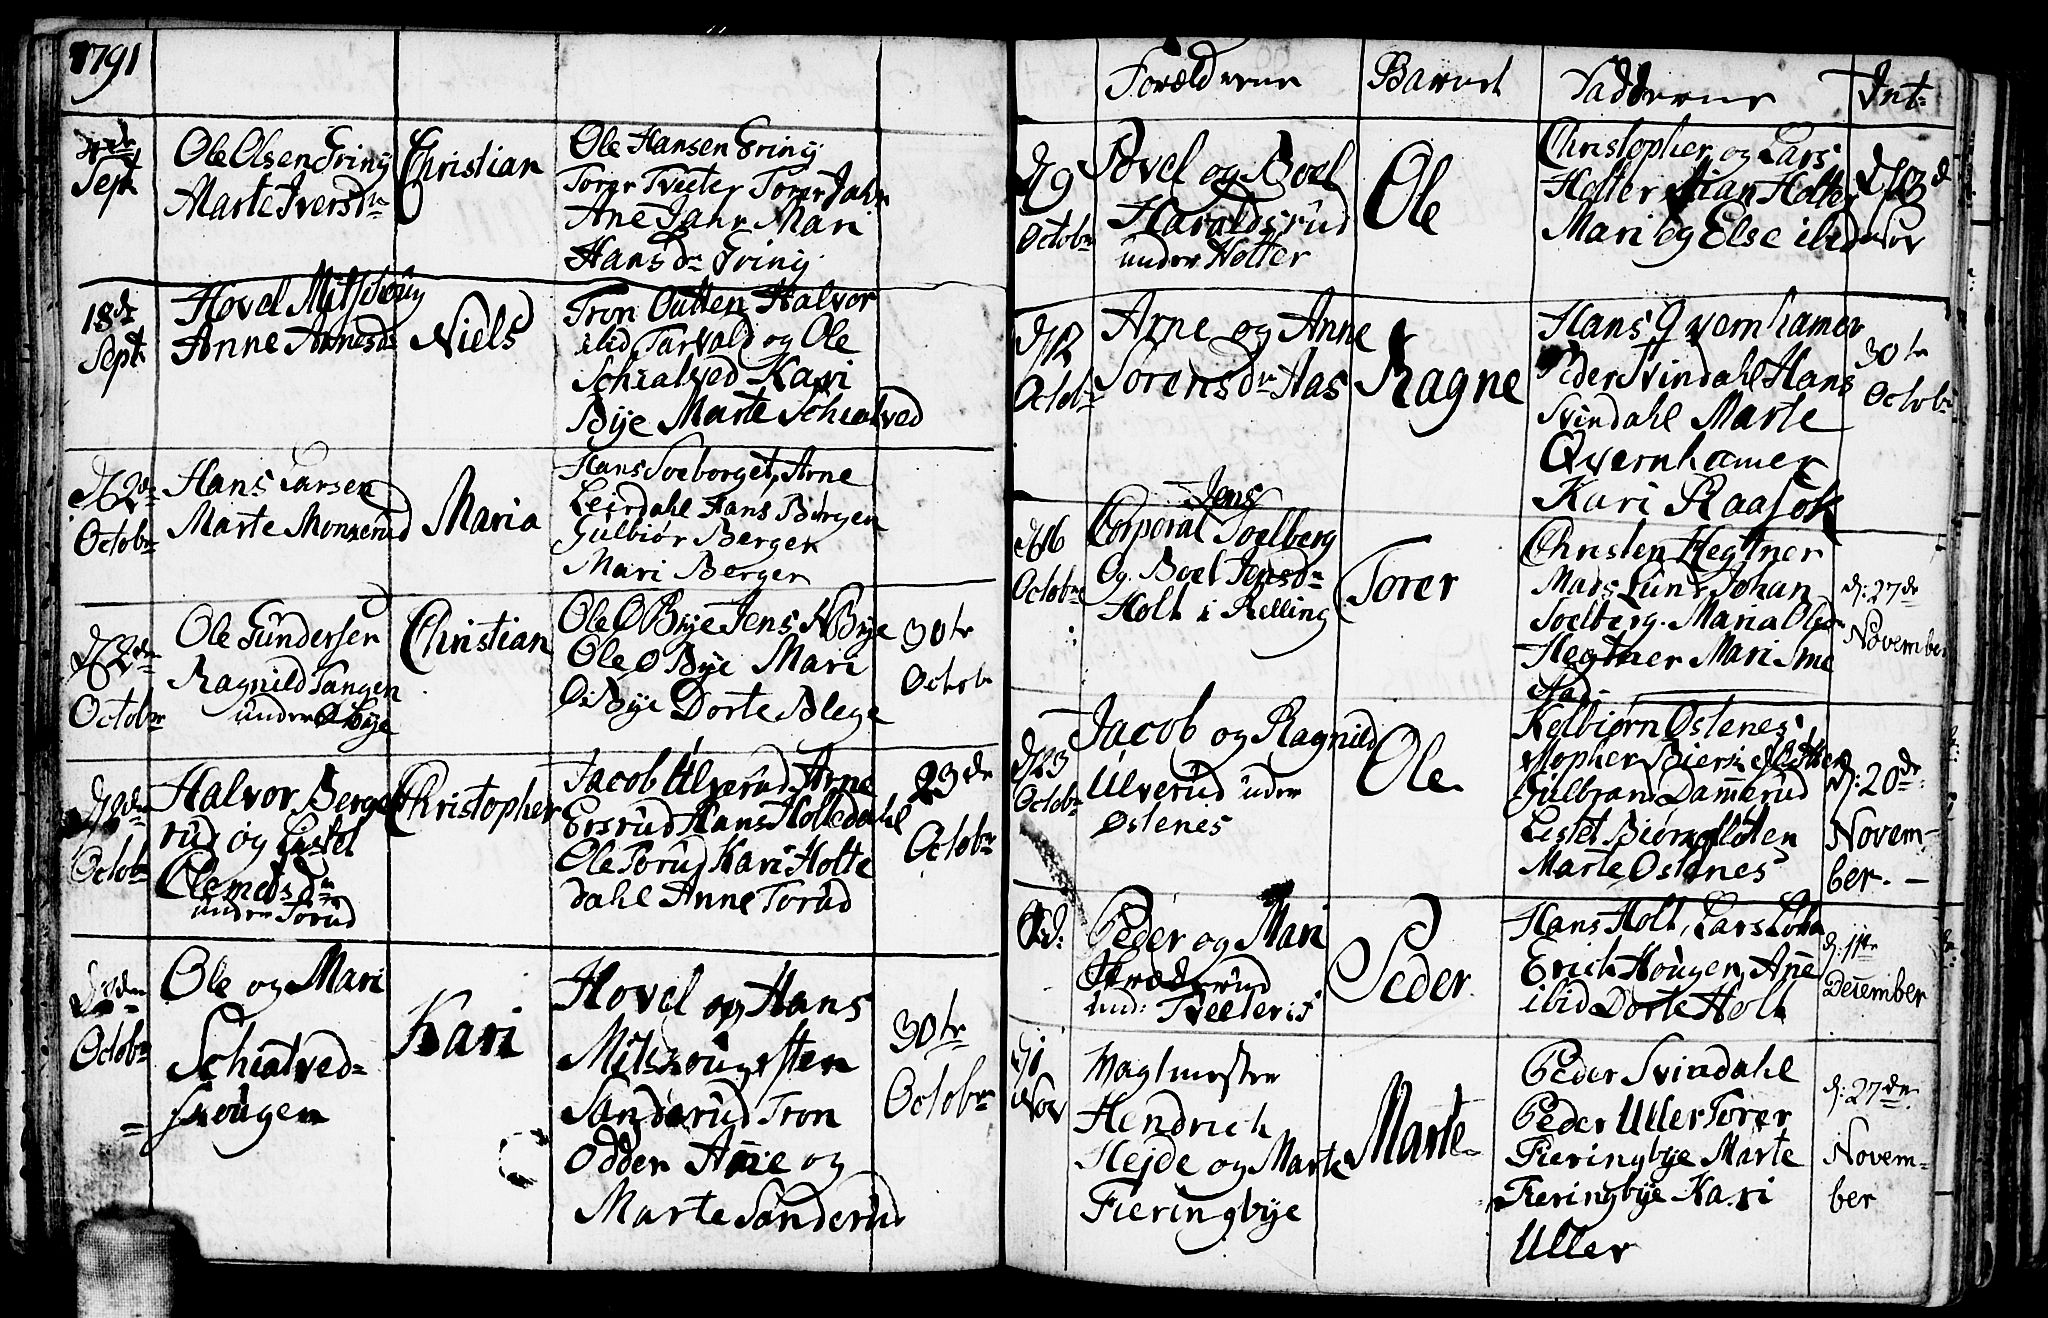 1791
4de
Sept
Ole Olsen Gring
Marte Iversdr
Christian
Ole Hansen Gring
Torer Tveter Torer Jahr
Ane Jahr Mari
Hansdr Gring
18de
Sept
Hovel Mitschoug
Anne Arnesdr
Niels
Tron Outten Halvor
ibid Tarvald og Ole
Schiatved Kari
Bye Marte Schiatved
d: 2den
Octobr
Hans Larsen
Marte Monserud
Maria
Hans Soeborget, Arne
Leirdahl Hans Børgen
Gulbiør Bergen
Mari Berger
d: 2den
Octobr
Ole Gundersen
Ragnild Tangen
under Ø Bye
Christian
Ole Ø Bye Jens N Bye
Ole Ø Bye Mari
Ø: Bye Dorte Blege
30te
Octobr
d: 9den
Octobr
Halvor Berge
rud og Listet
Clemetsdn
under Torud
Christopher
Jacob Ulverud Arne
Ersrud Hans Holtedahl
Ole Torud Kari Holte
dahl Anne Torud
23de
Octobr
Octobr
Ole og Mari
Schiatved=
schougen
Kari
Hovel og Hans
Mitskoug Sten
Sanderud Tron
Odden Ane og
Marte Sanderud
30te
Octobr
Forældrene
Barnet
Fadderne
Int:
d: 9
Octobr
Povel og Boel
Haraldsrud
under Holter
Ole
Christopher og Lars
Holter Stian Holter
Mari og Else ibid
d: 13d
Nov
d: 12
Octobr
Arne og Anne
Sørensdr Aas
Ragne
Hans Qvernhamer
Peder Svindahl Hans
Svindahl Marte
Qvernhamer
Kari Raasok
30te
Octobr
d: 16
Octobr
Jens
Corporal Soelberg
Og Boel Jensdr
Holt i Relling
Torer
Christen Hegtner
Mads Lund Johan
Soelberg Maria Olsdr
Hegtner Mari Sme
stad
d: 27de
November
d: 23
Octobr
Jacob og Ragnild
Ulverud under
Østenes
Ole
Kolbiørn Østenes
Gulbran Damerud
Listet Biørnefloten
Marte Østenes
d: 20de
Novem-
ber.
Peder og Mari
und: Tveeteris
Peder
Hans Holt, Lars
Erich Hougen, Ane
ibid Dorte Holt
d: 11te
December
d: 1
Nov
Wagtmester
Hendrich
Hejde og Marte
Fieringbye
Marte
Peder Svindahl
Peder Uller Torer
Fieringbye Marte
Fieringbye Kari
Uller
d: 27de
Novem=
ber